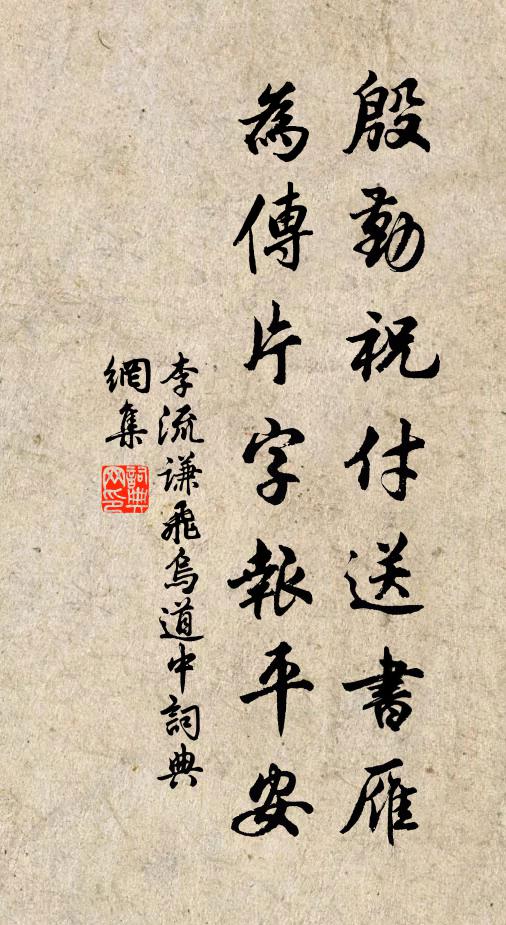 殷勤祝付送書雁
為傳片字報平安
李流謙飛烏道中詞典
網集
詞典網印